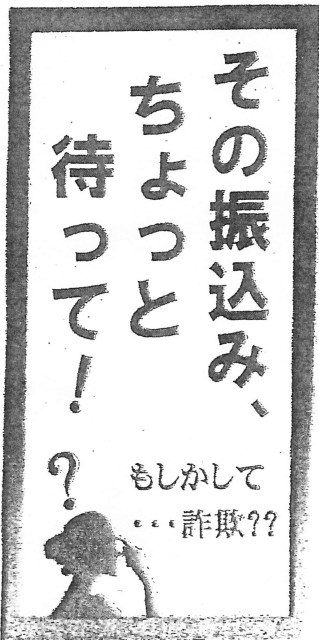 その振込み、
ちょっと
待って!
?
もしかして
・・・詐欺??